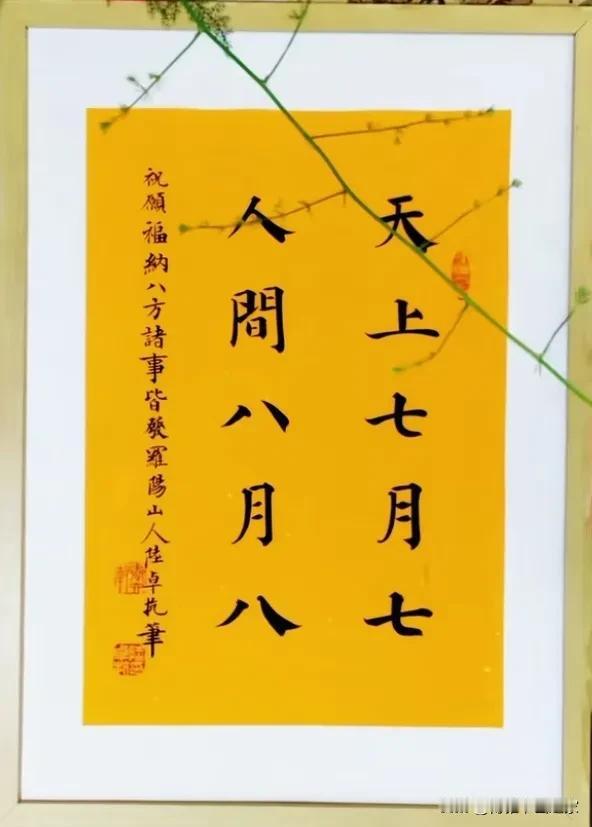 天上七月七
人間八月八
祝願福納八方諸事皆發羅陽山人陸卓抗筆